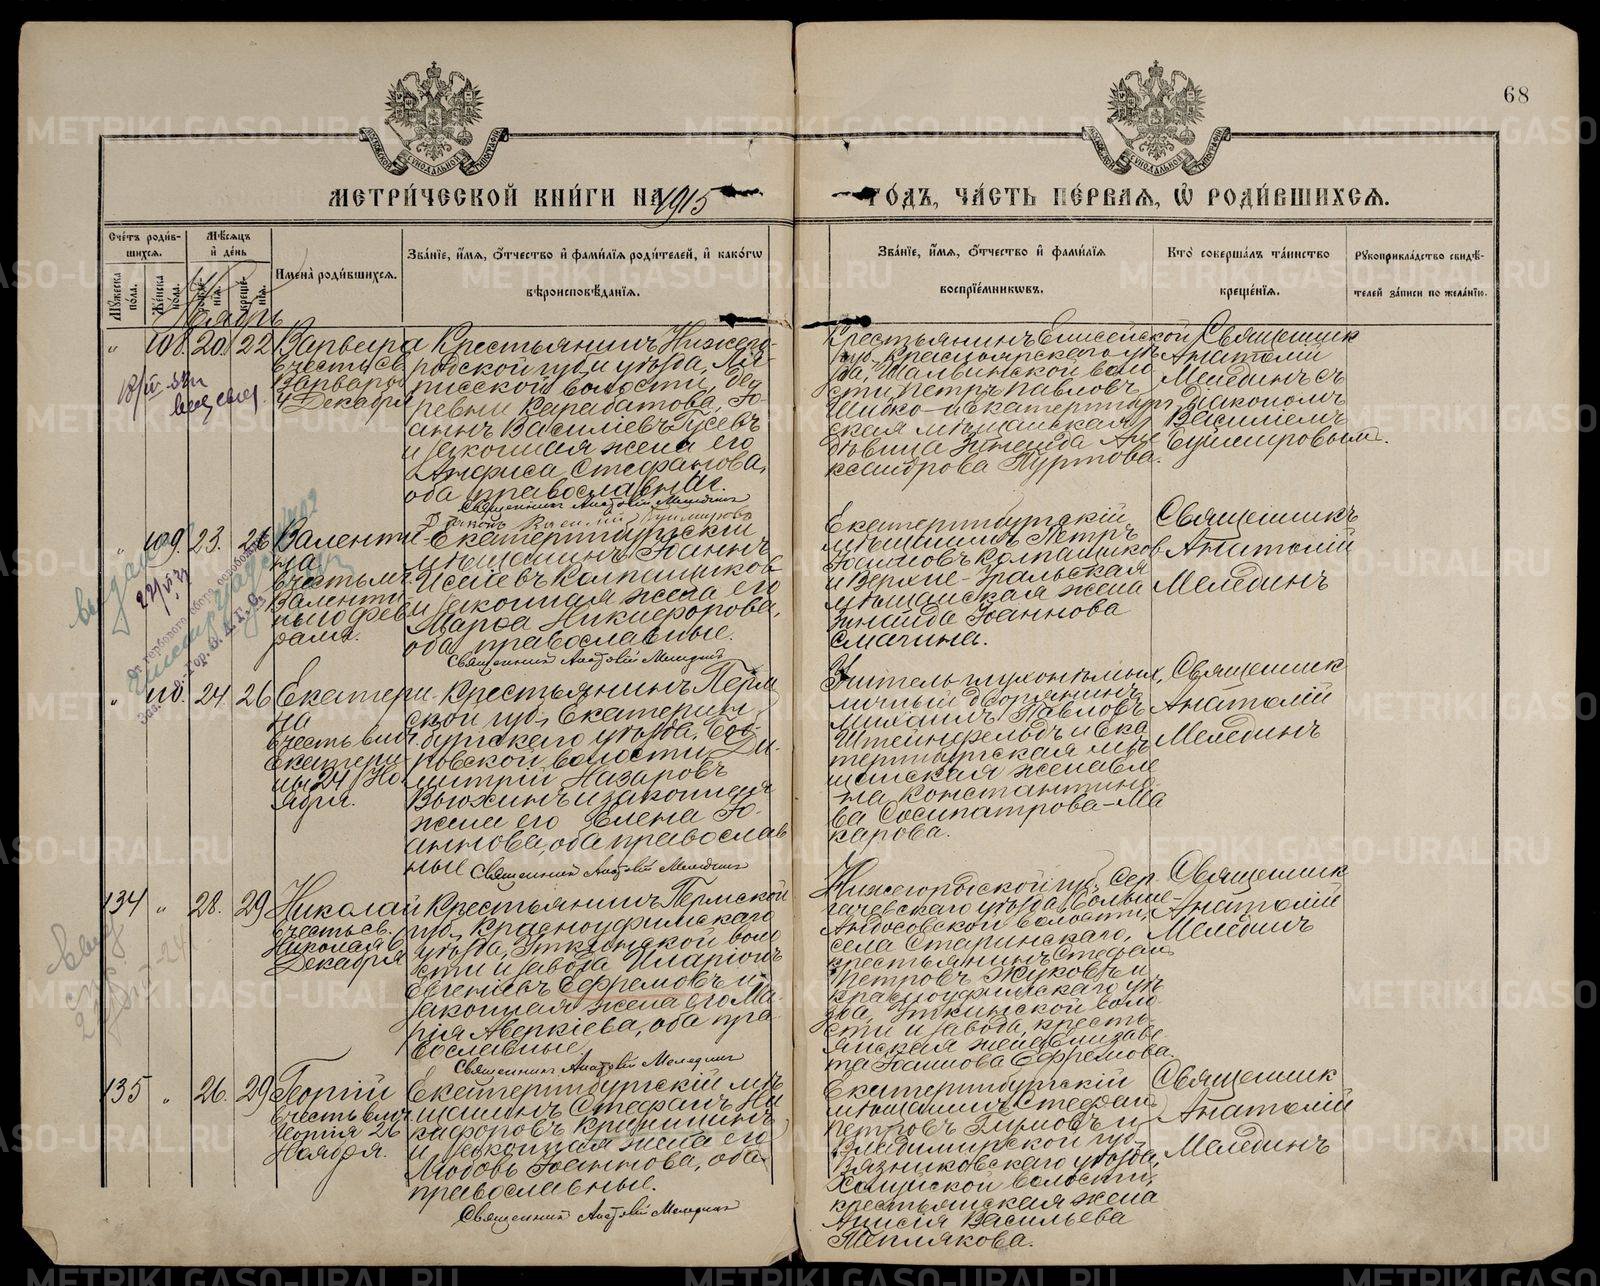 68
МЕТРИ́ЧЕСКОЙ КНИ́ГИ НА 1915
ГО́ДЪ, ЧА́СТЬ ПЕ́РВАЯ, Ѿ РОДИ́ВШИХСѦ.
Сче́тъ роди́в-
шихсѧ.
Мѣсѧцъ
и҆ де́нь
Имена̀ роди́вшихсѧ.
Зва́нїе, и҆́мѧ, ѻ҆́тчество и҆ фами́лїѧ роди́телей, и҆ како́гѡ
вѣроисповѣ́данїѧ.
Му́жеска по́ла.
Же́нска по́ла.
Ноябрь
Зва́нїе, и҆́мѧ, ѻ҆́тчество и҆ фами́лїѧ
воспрїе́мникѡвъ.
Кто̀ соверша́лъ та́инство
креще́нїѧ.
Рꙋкоприкла́дство свидѣ́-
телей за́писи по жела́нїю.
" 108. 20. 22
Варвара
въ честь св.
Варвары
4 Декабря
Крестьянинъ Нижего-
родской губ. и уѣзда,
волости, де-
ревни Карабатова, Іо-
аннъ Василіевъ Гусевъ
и законная жена его
Анфиса Стефанова,
оба православные.
Священникъ Анатолій Мелединъ
Крестьянинъ Енисейской
губ. Красноярскаго уѣз-
да, Шалинской воло-
сти, Петръ Павловъ
Шишко и екатеринбург-
ская мѣщанская
дѣвица Зинаида Але-
ксандрова Пуртова.
Священник
Анатолій
Мелединъ съ
Діакономъ
Василіемъ
" 109. 23. 26
Валенти-
на
въ честь мч.
Валенти-
ны 10 фев-
раля.
Екатеринбургскій
мѣщанинъ Іоаннъ
Исаіевъ Колпашиков
и законная жена его
Марѳа Никифорова,
оба православные.
Священникъ Анатолій Мелединъ
Екатеринбургскій
мѣщанинъ Петръ
Іоанновъ Колпашиков
и Верхне-Уральская
мѣщанская жена
Зинаида Іоаннова
Смагина.
Священникъ
Анатолій
Мелединъ
" 110. 24. 26
Екатери-
на
въ честь влмч.
Екатери-
ны 24 Но-
ября.
Крестьянинъ Перм-
ской губ., Екатерин-
бургскаго уѣзда,
волости, Ди-
митрій Назаровъ
Вьюхинъ и законная
жена его Елена Іо-
аннова, оба православ-
ные
Священникъ Анатолій Мелединъ
Учитель глухонѣмых,
личный дворянинъ
Михаилъ Павловъ
Штейнфельдъ и Ека-
теринбургская мѣ-
щанская жена
Константино-
ва Сосипатрова-Ма-
карова.
Священник
Анатолій
Мелединъ
134 " 28. 29
Николай
въ честь св.
Николая 6
Декабря
Крестьянинъ Пермской
губ., Красноуфимскаго
уѣзда, Уткинской воло-
сти и завода Иларіонъ
Евгеніевъ Ефремовъ и
законная жена его Ма-
рія Аверкіева, оба пра-
вославные
Священникъ Анатолій Мелединъ
Нижегородской губ., Сер-
гачевскаго уѣзда, Больше-
Андосовской волости,
села Старинскаго,
крестьянинъ Стефан
Петровъ Жуковъ и
Красноуфимскаго уѣз-
да, Уткинской воло-
сти и завода, кресть-
янская жена Елизаве-
та Іоаннова Ефремова.
Священник
Анатолій
Мелединъ
135 " 26. 29
Георгій
въ честь влмч.
Георгія 26
Ноября.
Екатеринбургскій мѣ-
щанинъ Стефанъ Ни-
кифоровъ
и законная жена его
Любовь Іоаннова, оба
православные.
Священникъ Анатолій Мелединъ
Екатеринбургскій
мѣщанинъ Стефанъ
Петровъ и
Владимирской губ.
Вязниковскаго уѣзда,
Холуйской волости,
крестьянская жена
Анисія Васильева
Теплякова.
Священник
Анатолій
Мелединъ
METRIKI.GASO-URAL.RU